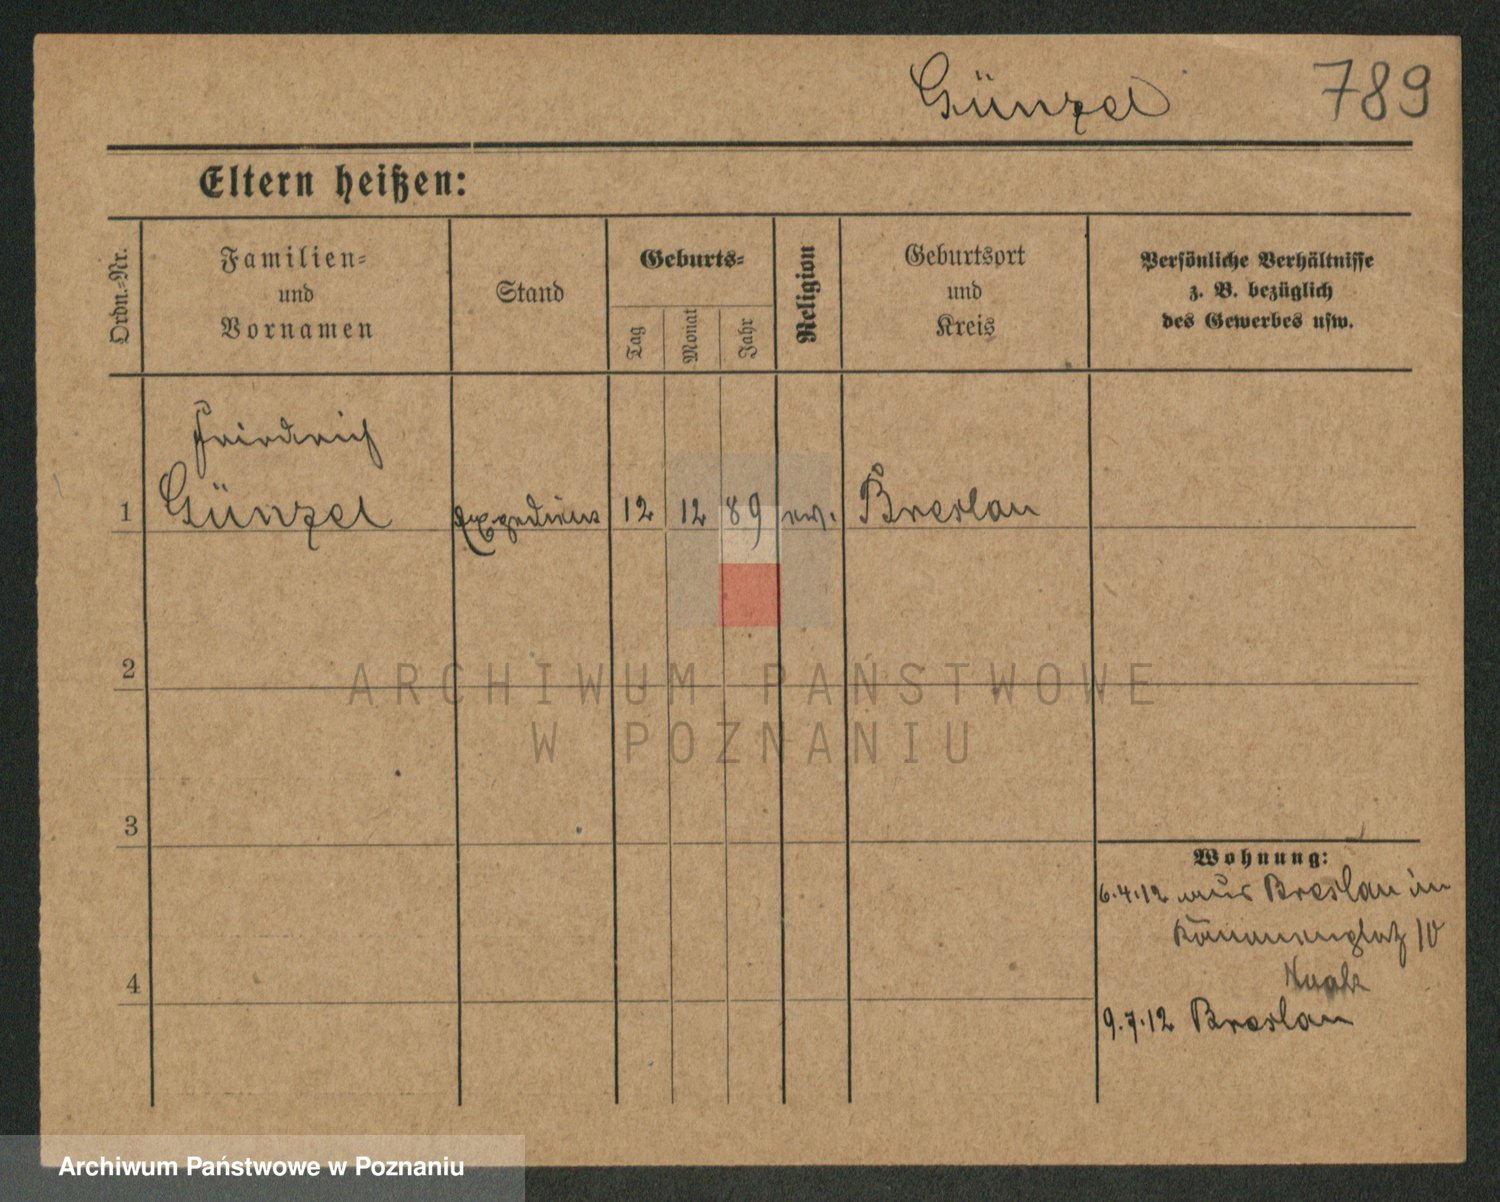 Günzel 789
Eltern heißen:
Ordn.-Nr.
Familien-
und
Vornamen
Stand
Geburts-
Tag
Monat
Jahr
Religion
Geburtsort
und
Kreis
Persönliche Verhältnisse
z. B. bezüglich
des Gewerbes usw.
Friedrich
1 Günzel Expedient 12 12 89 ev. Breslau
2
3
4
Wohnung:
6.4.12 aus Breslau in
10
9.7.12 Breslau
ARCHIWUM PAŃSTWOWE
W POZNANIU
Archiwum Państwowe w Poznaniu